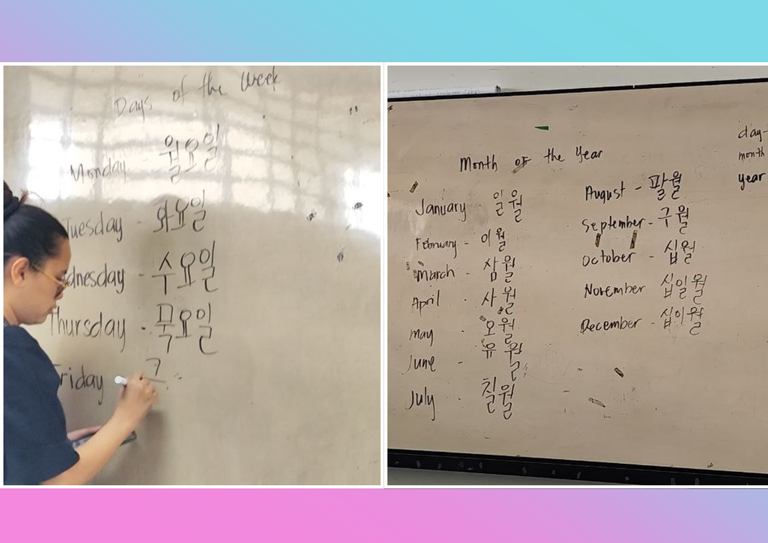 Days of the Week
Monday 월요일
Tuesday - 화요일
Wednesday 수요일
Thursday - 목요일
Friday
Month of the Year
January - 일월
February - 이월
March - 삼월
April - 사월
May - 오월
June - 유월
July - 칠월
August - 팔월
September - 구월
October - 십월
November 십일월
December - 십이월
day-
month
year